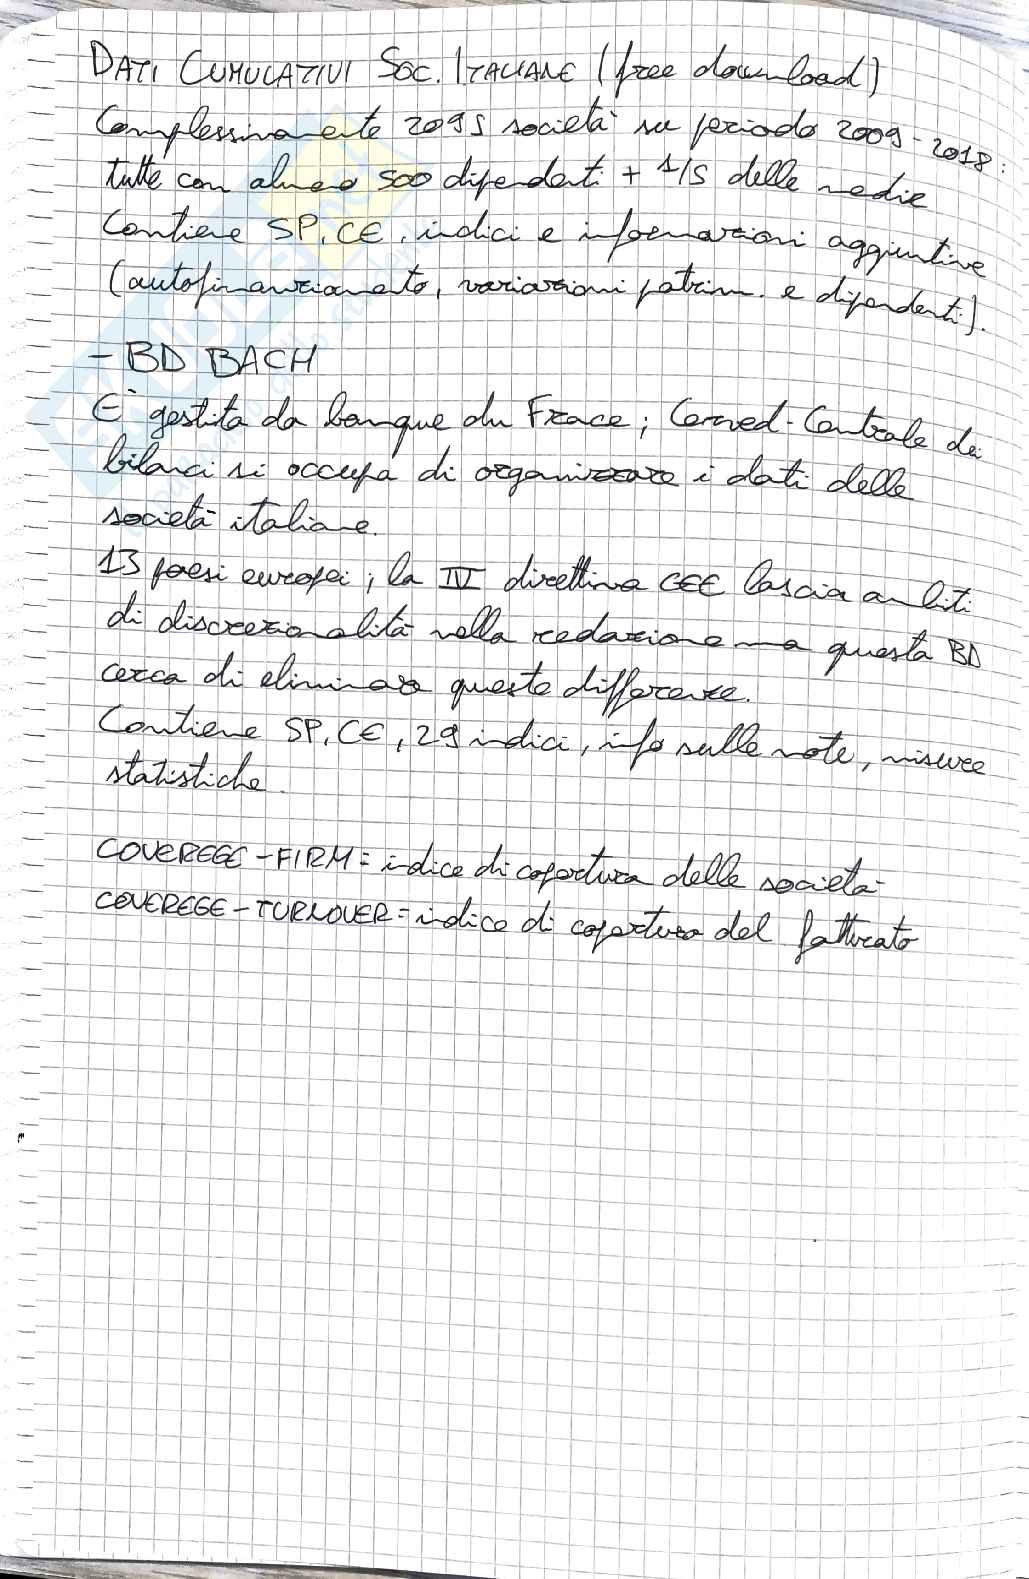 DATI CUMULATIVI SOC. ITALIANE (free download)
Complessivamente 2095 società su periodo 2009-2018:
tutte con almeno 500 dipendenti + 1/5 delle medie
Contiene SP, CE, indici e informazioni aggiuntive
(autofinanziamento, variazioni patrim. e dipendenti).
- BD BACH
E' gestita da banque du Frace; Cerved-Centrale dei
bilanci si occupa di organizzare i dati delle
società italiane.
13 paesi europei; la IV direttiva CEE lascia ambiti
di discrezionalità nella redazione ma questa BD
cerca di eliminare queste differenze.
Contiene SP, CE, 29 indici, info sulle note, misure
statistiche.
COVEREGE-FIRM= indice di copertura delle società
COVEREGE-TURNOVER= indice di copertura del fatturato